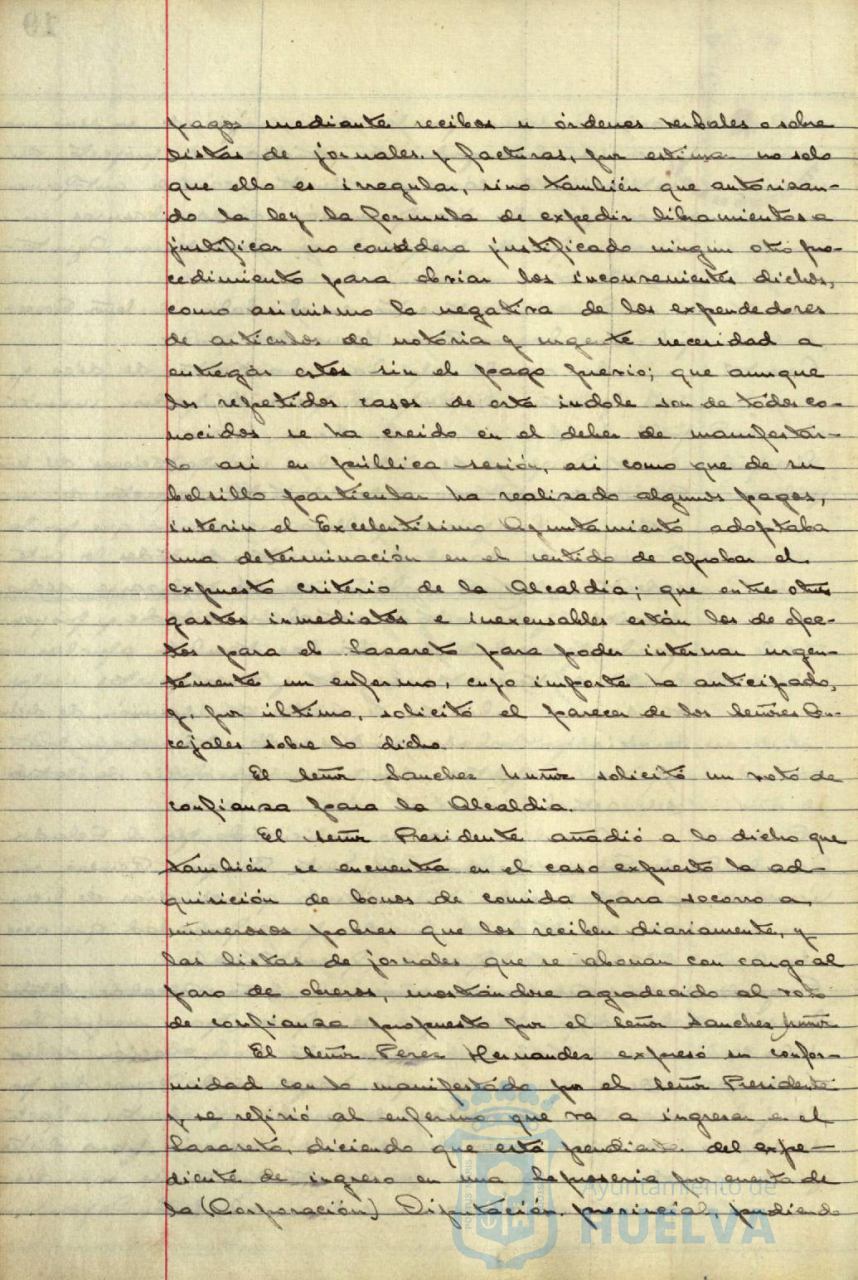 pagos mediante recibos u órdenes verbales o sobre
listas de jornales y facturas, por estimar no solo
que ello es irregular, sino también que autorizan-
do la ley la formula de expedir libramientos a
justificar no considera justificado ningun otro pro-
cedimiento para obviar los inconvenientes dichos,
como asimismo la negativa de los expendedores
de artículos de notoria y urgente necesidad a
entregar estos sin el pago previo; que aunque
los repetidos casos de esta indole son de todos co-
nocidos se ha creido en el deber de manifestar-
lo asi en pública sesión, asi como que de su
bolsillo particular ha realizado algunos pagos,
interin el Excelentísimo Ayuntamiento adoptaba
una determinación en el sentido de aprobar el
expuesto criterio de la Alcaldía; que entre otros
gastos inmediatos e inexcusables están los de efec-
tos para el Lazareto para poder internar urgen-
temente un enfermo, cuyo importe ha anticipado,
y, por último, solicitó el parecer de los Señores Con-
cejales sobre lo dicho.
El Señor Sanchez Muñoz solicitó un voto de
confianza para la Alcaldía.
El Señor Presidente añadió a lo dicho que
también se encuentra en el caso expuesto la ad-
quisición de bonos de comida para socorro a
númerosos pobres que los reciben diariamente, y
las listas de jornales que se abonan con cargo al
paro de obreros, mostrándose agradecido al voto
de confianza propuesto por el Señor Sanchez Muñoz
El Señor Perez Hernandez expresó su confor-
midad con lo manifestado por el Señor Presidente
y se refirió al enfermo que va a ingresar en el
Lazareto, diciendo que está pendiente del expe-
diente de ingreso en una leproseria por cuenta de
la (Corporación) Diputación provincial, pudiendo
Ayuntamiento de
HUELVA